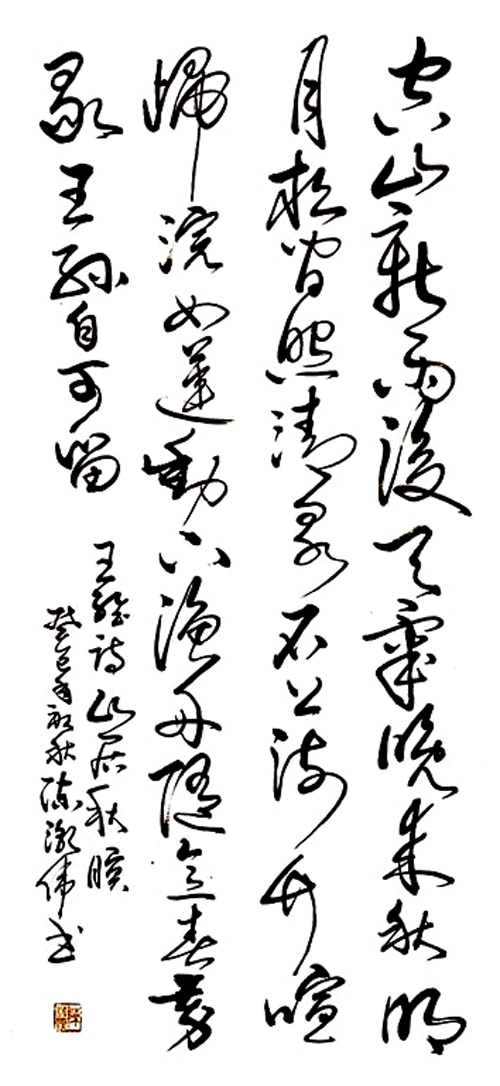 空山新雨後天氣晚来秋明
月松间照清泉石上流竹喧
歸浣女蓮動下漁舟随意春芳
歇王孫自可留
王維詩山居秋暝
癸巳年初秋陈伟书